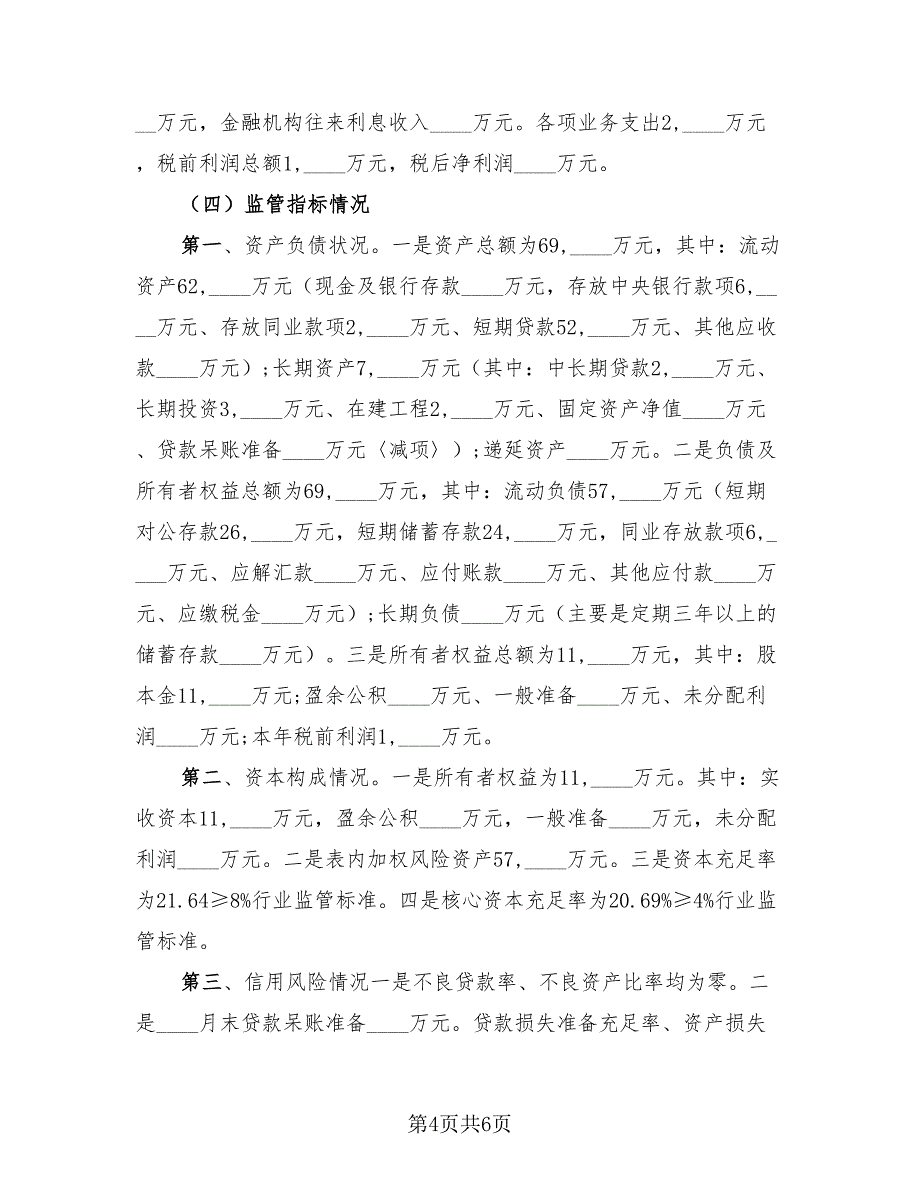 __万元，金融机构往来利息收入____万元。各项业务支出2,____万元
，税前利润总额1,____万元，税后净利润____万元。
（四）监管指标情况
第一、资产负债状况。一是资产总额为69,____万元，其中：流动
资产62,____万元（现金及银行存款____万元，存放中央银行款项6,__
__万元、存放同业款项2,____万元、短期贷款52,____万元、其他应收
款____万元）;长期资产7,____万元（其中：中长期贷款2,____万元、
长期投资3,____万元、在建工程2,____万元、固定资产净值____万元
、贷款呆账准备____万元〈减项〉）;递延资产____万元。二是负债及
所有者权益总额为69,____万元，其中：流动负债57,____万元（短期
对公存款26,____万元，短期储蓄存款24,____万元，同业存放款项6,_
___万元、应解汇款____万元、应付账款____万元、其他应付款____万
元、应缴税金____万元）;长期负债____万元（主要是定期三年以上的
储蓄存款____万元）。三是所有者权益总额为11,____万元，其中：股
本金11,____万元;盈余公积____万元、一般准备____万元、未分配利
润____万元;本年税前利润1,____万元。
第二、资本构成情况。一是所有者权益为11,____万元。其中：实
收资本11,____万元，盈余公积____万元，一般准备____万元，未分配
利润____万元。二是表内加权风险资产57,____万元。三是资本充足率
为21.64≥8%行业监管标准。四是核心资本充足率为20.69%≥4%行业监
管标准。
第三、信用风险情况一是不良贷款率、不良资产比率均为零。二
是____月末贷款呆账准备____万元。贷款损失准备充足率、资产损失
第4页共6页